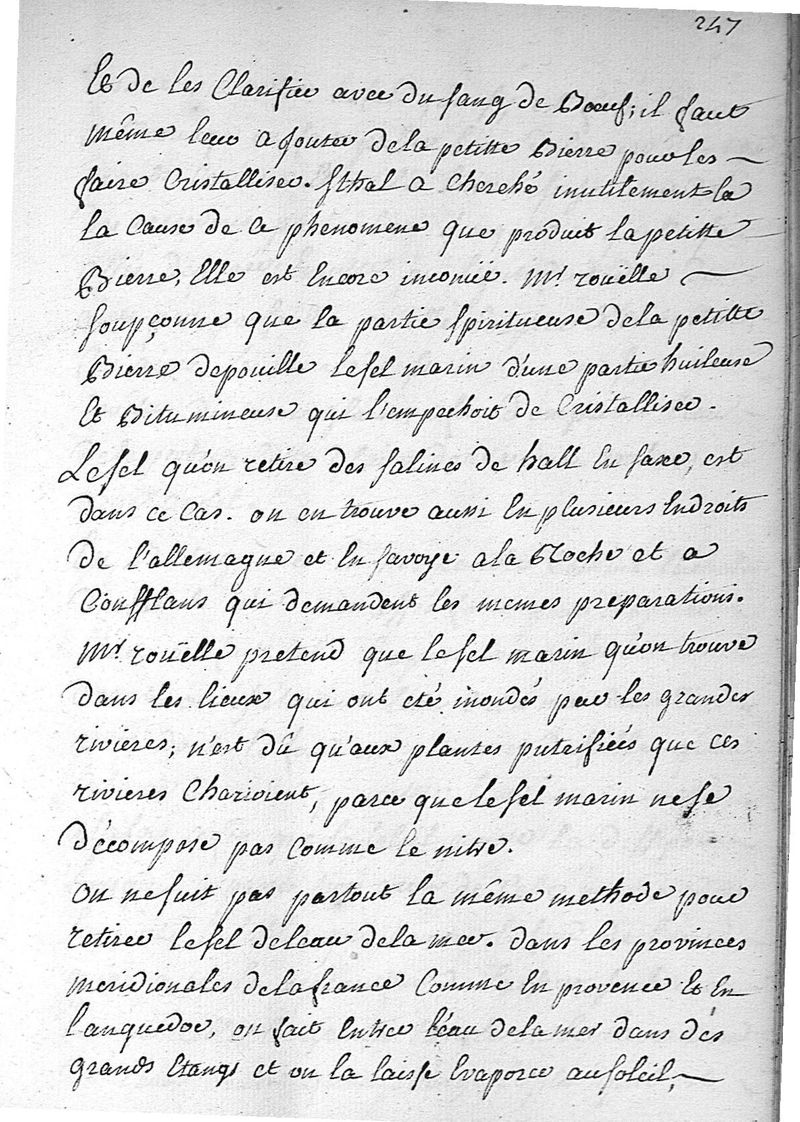 247
Et de les Clarifier avec du sang de Bœuf; il faut
même leur ajouter de la petitte Bierre pour les
faire Cristalliser. Sthal a cherché inutilement la
la Cause de ce phenomene que produit la petitte
Bierre, Elle est Encore inconüe. Mr. rouëlle
soupçonne que la partie spiritueuse de la petitte
Bierre depouille le sel marin d'une partie huileuse
Et Bitumineuse qui l'empechoit de Cristalliser.
Le sel qu'on retire des salines de hall En saxe, est
dans ce Cas. on en trouve aussi En plusieurs Endroits
de l'allemagne et En savoye a la Roche et a
Coufflans qui demandent les memes preparations.
Mr. rouëlle pretend que le sel marin qu'on trouve
dans les lieux qui ont eté inondés par les grandes
rivieres; n'est dû qu'aux plantes putrifiées que ces
rivieres Charient, parce que le sel marin ne se
décompose pas comme le nitre.
on ne suit pas partout la même methode pour
retirer le sel de leau de la mer. dans les provinces
meridionales de la france Comme En provence Et En
Languedoc, on fait Entrer l'eau de la mer dans des
grands Etangs et on la laisse Evaporer au soleil,